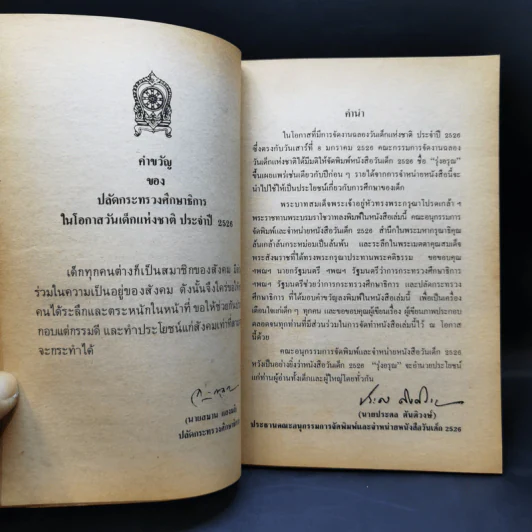 คำขวัญ
ของ
ปลัดกระทรวงศึกษาธิการ
ในโอกาสวันเด็กแห่งชาติ ประจำปี 2526
เด็กทุกคนต่างก็เป็นสมาชิกของสังคม
ร่วมในความเป็นอยู่ของสังคม ดังนั้นจึงใคร่ขอให้
คนได้ระลึกและตระหนักในหน้าที่ ขอให้ช่วยกัน
กอบแต่กรรมดี และทำประโยชน์แก่สังคมเท่าที่
จะกระทำได้
ปลัดกระทรวงศึกษาธิการ
คำนำ
ในโอกาสที่มีการจัดงานฉลองวันเด็กแห่งชาติ ประจำปี 2526
ซึ่งตรงกับวันเสาร์ที่ 8 มกราคม 2526 คณะกรรมการจัดงานฉลอง
วันเด็กแห่งชาติได้มีมติให้จัดพิมพ์หนังสือวันเด็ก 2526 ชื่อ "รุ่งอรุณ"
ขึ้นเผยแพร่เช่นเดียวกับปีก่อน ๆ รายได้จากการจำหน่ายหนังสือนี้จะ
นำไปใช้ให้เป็นประโยชน์เกี่ยวกับการศึกษาของเด็ก
พระบาทสมเด็จพระเจ้าอยู่หัวทรงพระกรุณาโปรดเกล้า ฯ
พระราชทานพระบรมราโชวาทลงพิมพ์ในหนังสือเล่มนี้ คณะอนุกรรมการ
จัดพิมพ์และจำหน่ายหนังสือวันเด็ก 2526 สำนึกในพระมหากรุณาธิคุณ
ล้นเกล้าล้นกระหม่อมเป็นล้นพ้น และระลึกในพระเมตตาคุณสมเด็จ
พระสังฆราชที่ได้ทรงพระกรุณาประทานพระคติธรรม ขอขอบคุณ
ฯพณฯ นายกรัฐมนตรี ฯพณฯ รัฐมนตรีว่าการกระทรวงศึกษาธิการ
ฯพณฯ รัฐมนตรีช่วยว่าการกระทรวงศึกษาธิการ และปลัดกระทรวง
ศึกษาธิการ ที่ได้มอบคำขวัญลงพิมพ์ในหนังสือเล่มนี้ เพื่อเป็นเครื่อง
เตือนใจแก่เด็ก ๆ ทุกคน และขอขอบคุณผู้เขียนเรื่อง ผู้เขียนภาพประกอบ
ตลอดจนทุกท่านที่มีส่วนร่วมในการจัดทำหนังสือเล่มนี้ไว้ ณ โอกาส
นี้ด้วย
คณะอนุกรรมการจัดพิมพ์และจำหน่ายหนังสือวันเด็ก 2526
หวังเป็นอย่างยิ่งว่าหนังสือวันเด็ก 2526 "รุ่งอรุณ" จะอำนวยประโยชน์
แก่ท่านผู้อ่านทั้งเด็กและผู้ใหญ่โดยทั่วกัน
(นายประดล ตันติวงษ์)
ประธานคณะอนุกรรมการจัดพิมพ์และจำหน่ายหนังสือวันเด็ก 2526